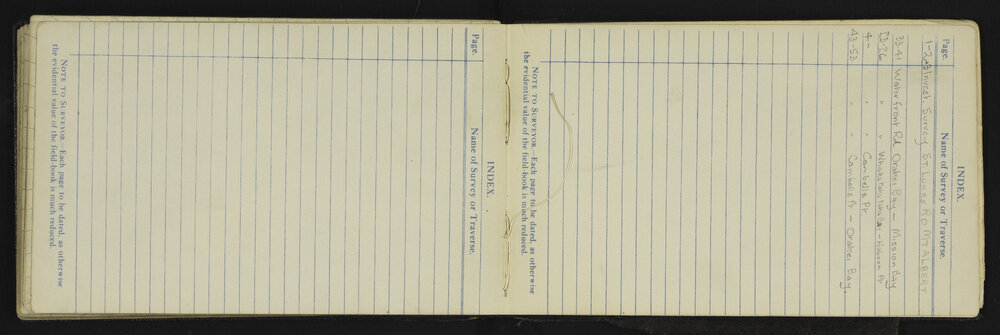 INDEX.
Page. Name of Survey or Traverse.
Invest. Survey ST. LUKES RD MT ALBERT
33-41 Waterfront Rd Orakei Bay - Mission Bay
" " - Hobson Pt
4- " " Cambelle Pt.
43-53 " " Cambelle Pt - Orakei Bay.
NOTE TO SURVEYOR.—Each page to be dated, as otherwise
the evidential value of the field-book is much reduced.
INDEX.
Page. Name of Survey or Traverse.
NOTE TO SURVEYOR.—Each page to be dated, as otherwise
the evidential value of the field-book is much reduced.